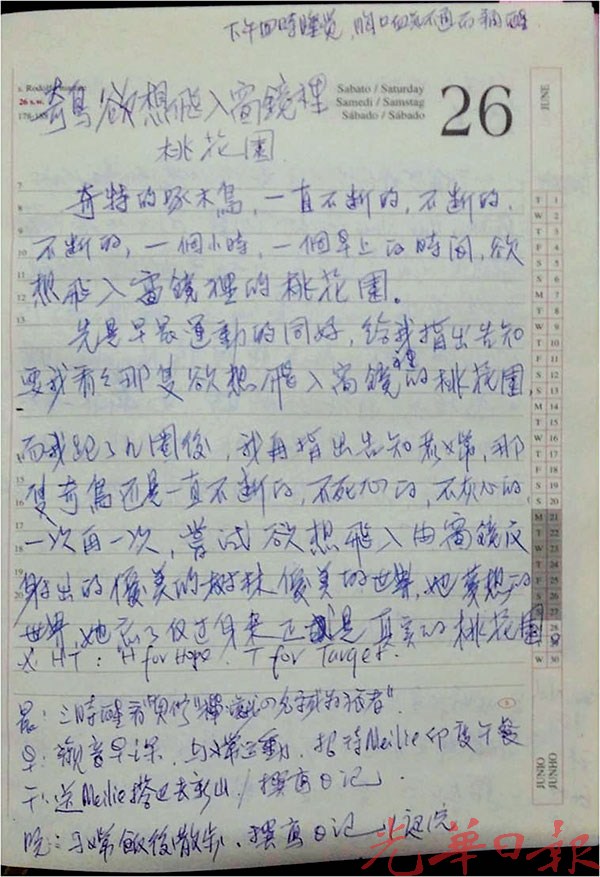 下午四時睡覺,胸口血氣不通而痛醒
s. Rodol
26 s. w.
178-188
Sabato / Saturday
Samedi / Samstag
Sábado / Sábado
26
JUNE
奇鳥欲想飛入窗鏡裡
桃花園
奇特的啄木鳥,一直不断的,不断的,
不断的,一個小時,一個早上的時间,欲
想飛入窗鏡裡的桃花園。
先是早晨運動的同好,給我指出告知
要我看々那隻欲想飛入窗鏡裡的桃花園,
而我跑了九圈後,我再指出告知 那
隻奇鳥还是一直不断的,不死心的,不灰心的
一次再一次,嘗試欲想飛入由窗鏡反
射出的優美的树林優美的世界,她夢想的
世界,她忘了 过身来正是真美的桃花園。
※ HT : "H for Hope . T for Target.
晨:三時醒看
早:觀音早课,与 运動,招待Meilie印度午餐
下:送Meilie搭巴去新山 / 撰寫日记
晚:与 飯後散步,撰寫日记
7
8
9
10
11
12
13
14
15
16
17
18
19
20
T 1
W 2
T 3
F 4
S 5
S 6
M 7
T 8
W 9
T 10
F 11
S 12
S 13
M 14
T 15
W 16
T 17
F 18
S 19
S 20
M 21
T 22
W 23
T 24
F 25
S 26
S 27
M 28
T 29
W 30
JUNIO
JUNHO
光華日報